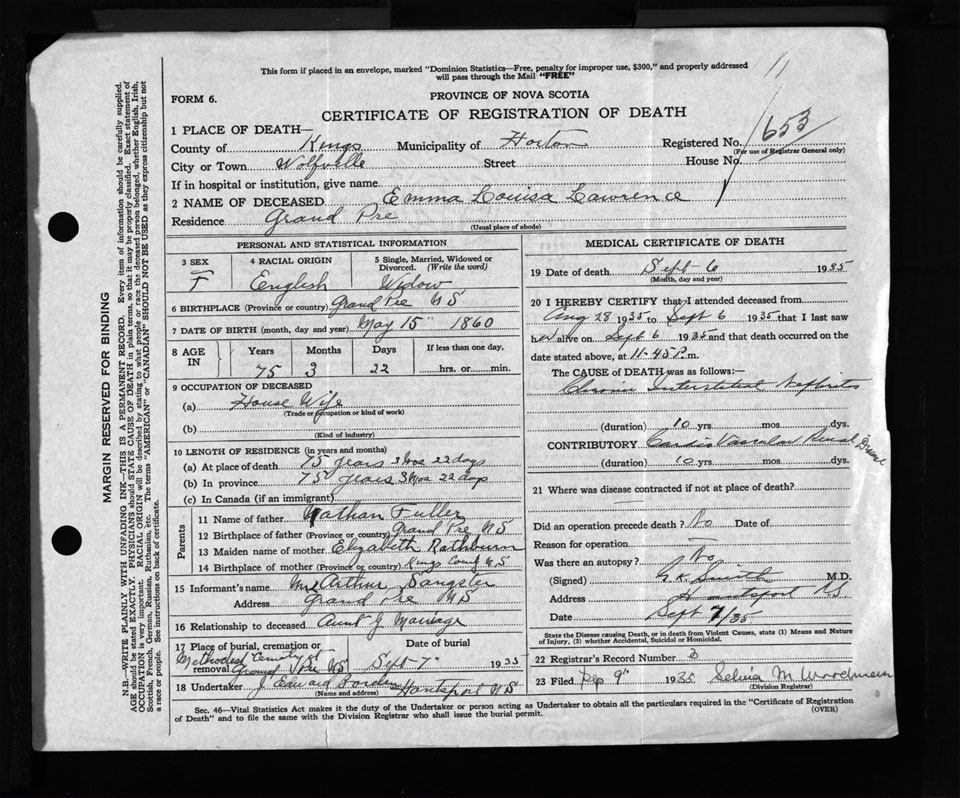 11
This form if placed in an envelope, marked "Dominion Statistics—Free, penalty for improper use, $300," and properly addressed
will pass through the Mail "FREE"
FORM 6.
PROVINCE OF NOVA SCOTIA
CERTIFICATE OF REGISTRATION OF DEATH
1 PLACE OF DEATH—
County of Kings Municipality of Horton Registered No. 653
(For use of Registrar General only)
City or Town Wolfville Street House No.
If in hospital or institution, give name
2 NAME OF DECEASED Emma Louisa Lawrence
Residence Grand Pre
(Usual place of abode)
PERSONAL AND STATISTICAL INFORMATION
3 SEX 4 RACIAL ORIGIN 5 Single, Married, Widowed or Divorced. (Write the word)
F English Widow
6 BIRTHPLACE (Province or country) Grand Pre NS
7 DATE OF BIRTH (month, day and year) May 15" 1860
8 AGE IN Years Months Days If less than one day,
75 3 22 hrs. or min.
9 OCCUPATION OF DECEASED
(a) House Wife
(Trade or occupation or kind of work)
(b)
(Kind of industry)
10 LENGTH OF RESIDENCE (in years and months)
(a) At place of death 75 years 3 mos 22 days
(b) In province 75 years 3 mos 22 days
(c) In Canada (if an immigrant)
Parents
11 Name of father Nathan Fuller
12 Birthplace of father (Province or country) Grand Pre NS
13 Maiden name of mother Elizabeth Rathburn
14 Birthplace of mother (Province or country) Kings County NS
15 Informant's name Mrs Arthur Sangster
Address Grand Pre NS
16 Relationship to deceased Aunt by Marriage
17 Place of burial, cremation or removal Date of burial
Methodist Cemetery at Grand Pre NS Sept 7" 1935
18 Undertaker J Edward Borden Hantsport NS
(Name and address)
MEDICAL CERTIFICATE OF DEATH
19 Date of death Sept 6 1935
(Month, day and year)
20 I HEREBY CERTIFY that I attended deceased from
Aug 28 1935 to Sept 6 1935 that I last saw
her alive on Sept 6 1935 and that death occurred on the
date stated above, at 11.45 P.m.
The CAUSE OF DEATH was as follows:—
Chronic Interstitial Nephritis
(duration) 10 yrs. mos. dys.
CONTRIBUTORY Cardio Vascular Renal Disease
(duration) 10 yrs. mos. dys.
21 Where was disease contracted if not at place of death?
Did an operation precede death? No Date of
Reason for operation —
Was there an autopsy? No
(Signed) Smith M.D.
Address Hantsport NS
Date Sept 7/35
State the Disease causing Death, or in death from Violent Causes, state (1) Means and Nature
of Injury, (2) whether Accidental, Suicidal or Homicidal.
22 Registrar's Record Number
23 Filed Sep 9" 1935 Selina M Woodman
(Division Registrar)
Sec. 46—Vital Statistics Act makes it the duty of the Undertaker or person acting as Undertaker to obtain all the particulars required in the "Certificate of Registration
of Death" and to file the same with the Division Registrar who shall issue the burial permit.
(OVER)
MARGIN RESERVED FOR BINDING
N.B.—WRITE PLAINLY WITH UNFADING INK—THIS IS A PERMANENT RECORD. Every item of information should be carefully supplied.
AGE should be stated EXACTLY. PHYSICIANS should STATE CAUSE OF DEATH in plain terms, so that it may be properly classified. Exact statement of
OCCUPATION is very important. RACIAL ORIGIN will be described by stating to what people or race the deceased person belonged, whether English, Irish,
Scottish, French, German, Russian, Ruthenian, etc. The terms "AMERICAN" or "CANADIAN" SHOULD NOT BE USED as they express citizenship but not
a race or people. See instructions on back of certificate.